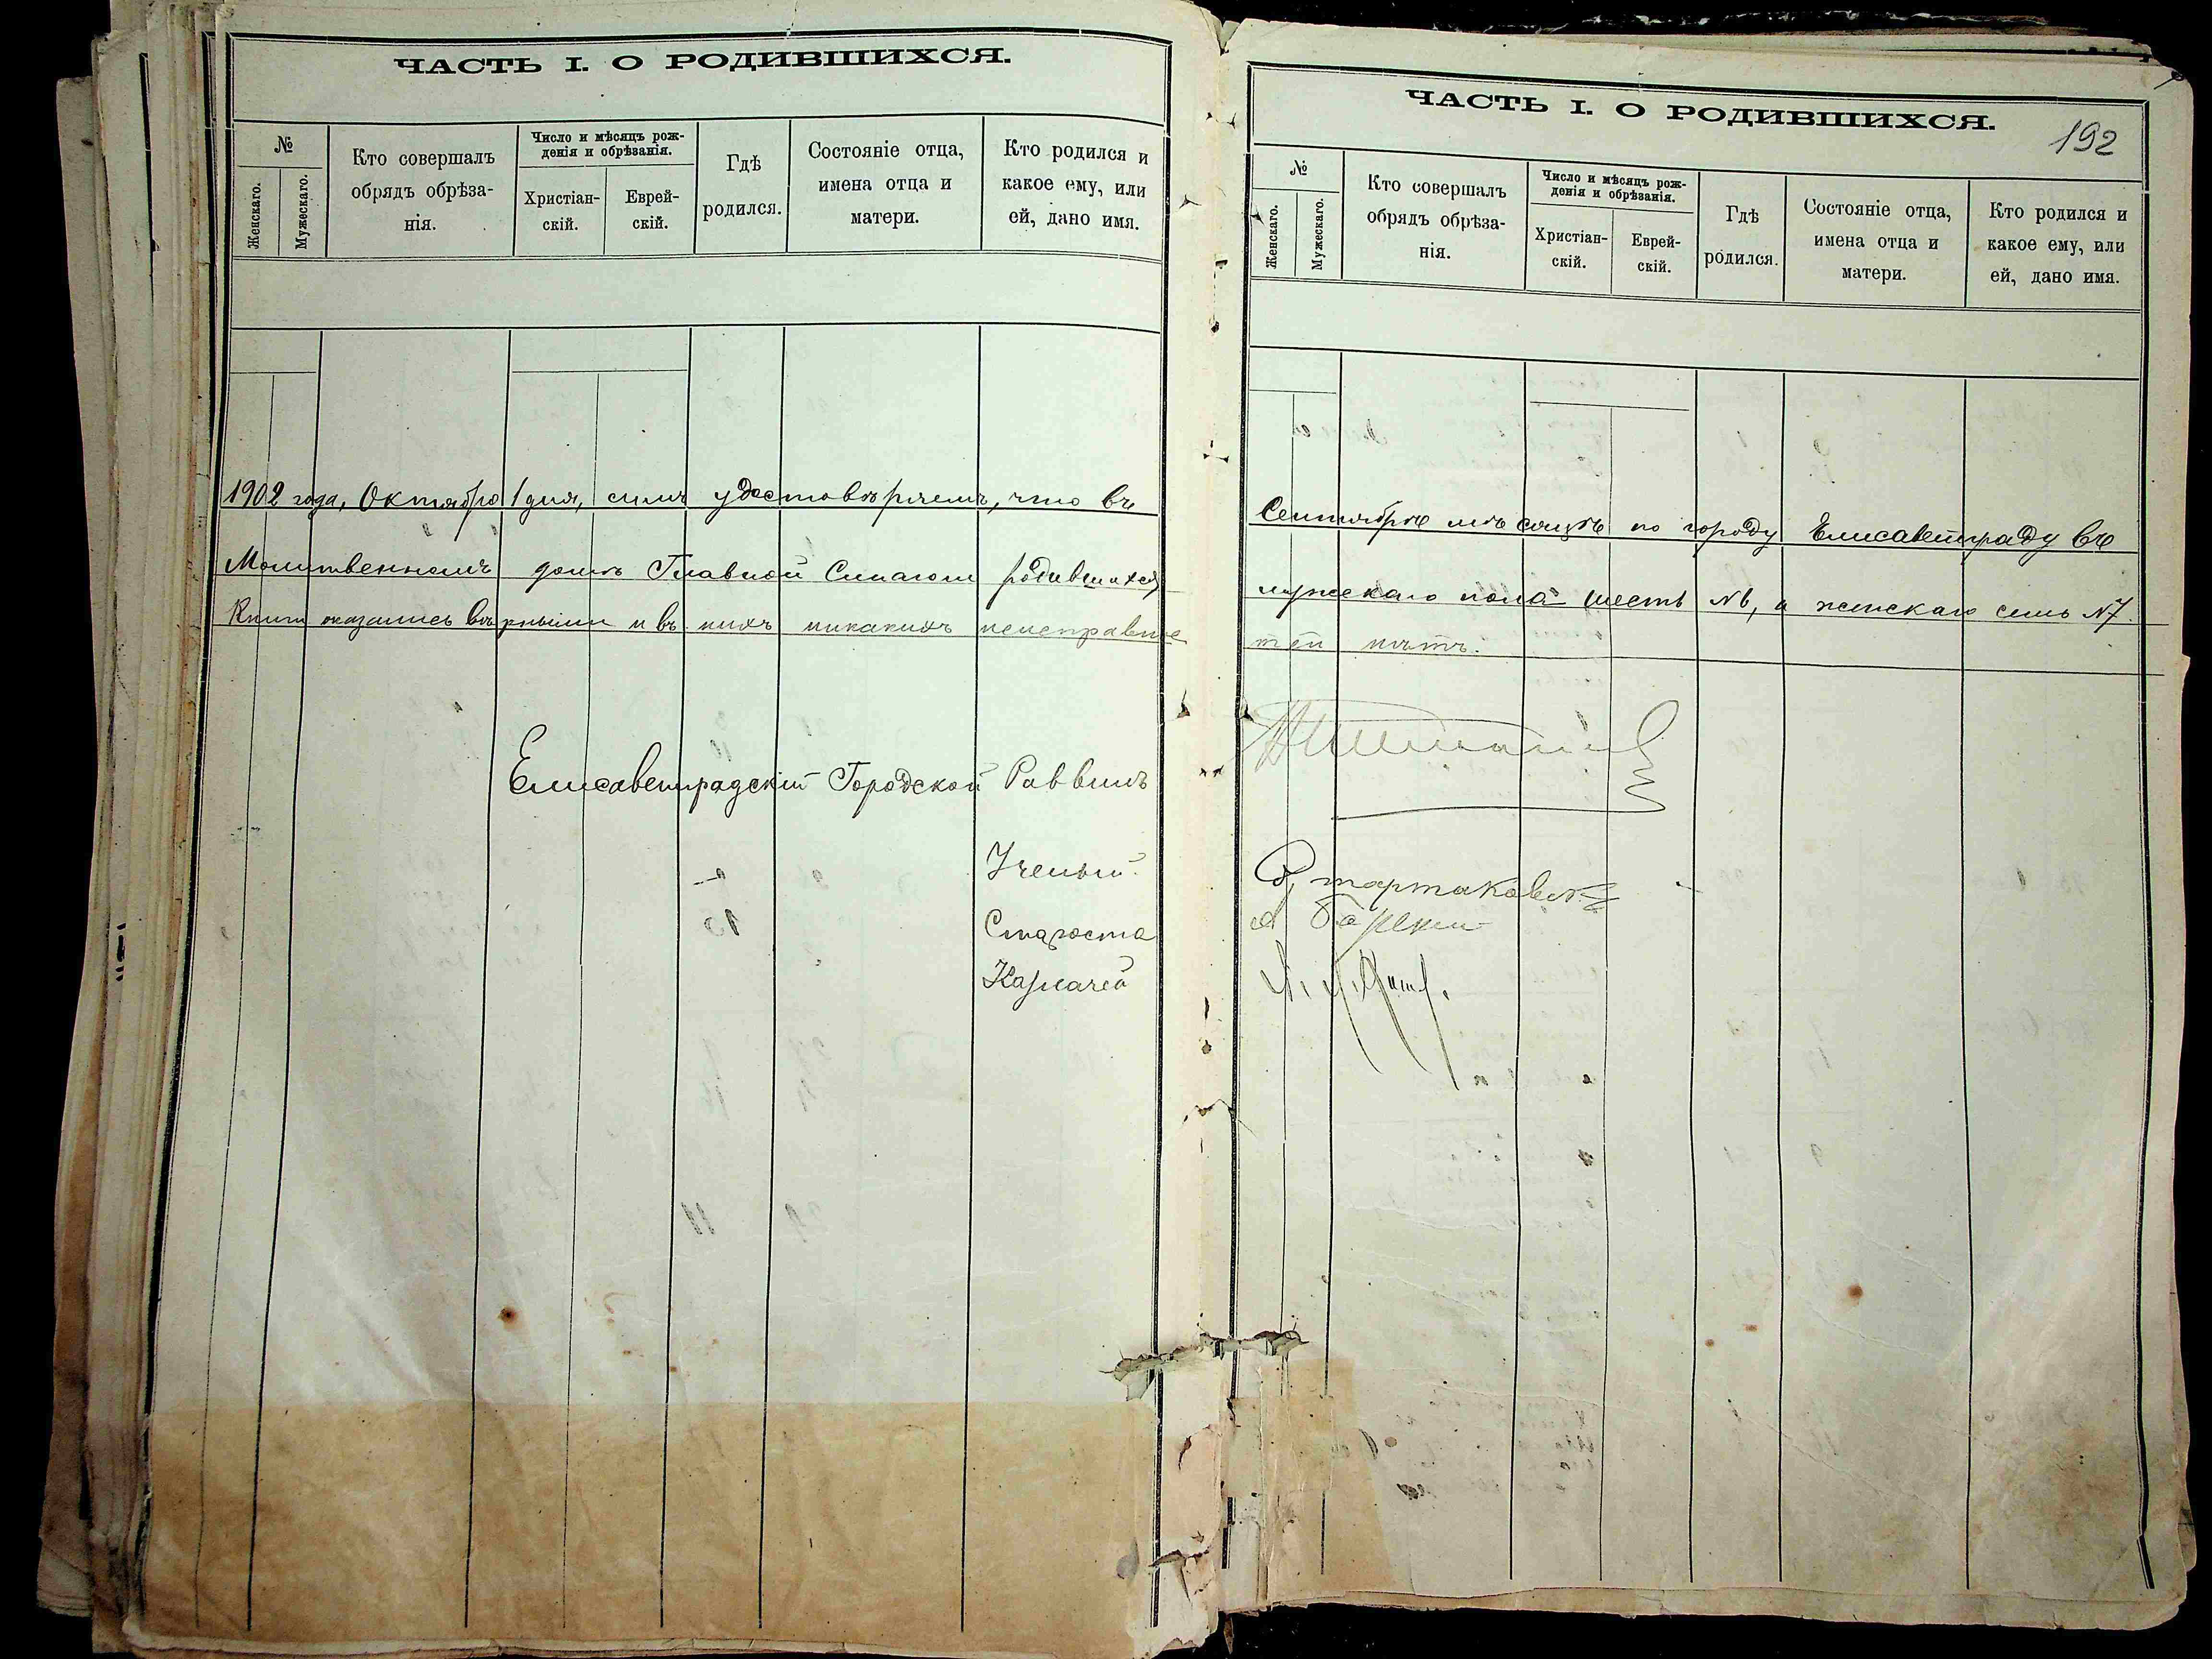 ЧАСТЬ I. О РОДИВШИХСЯ.
№
Женскаго.
Мужескаго.
Кто совершалъ
обрядъ обрѣза-
нія.
Число и мѣсяцъ рож-
денія и обрѣзанія.
Христіан-
скій.
Еврей-
скій.
Гдѣ
родился.
Состояніе отца,
имена отца и
матери.
Кто родился и
какое ему, или
ей, дано имя.
1902 года, Октября 1 дня, симъ удостовѣряемъ, что въ
Молитвенномъ домѣ Главной Синагоги родившихся
Книги оказались вѣрными и въ нихъ никакихъ неисправнос
Елисаветградскій Городской Раввинъ
Ученый
Староста
Казначей
ЧАСТЬ I. О РОДИВШИХСЯ.
192
№
Женскаго.
Мужескаго.
Кто совершалъ
обрядъ обрѣза-
нія.
Число и мѣсяцъ рож-
денія и обрѣзанія.
Христіан-
скій.
Еврей-
скій.
Гдѣ
родился.
Состояніе отца,
имена отца и
матери.
Кто родился и
какое ему, или
ей, дано имя.
Сентябрѣ мѣсяцѣ по городу Елисаветграду въ
мужескаго пола шесть №6, а женскаго семь №7.
тей нѣтъ.